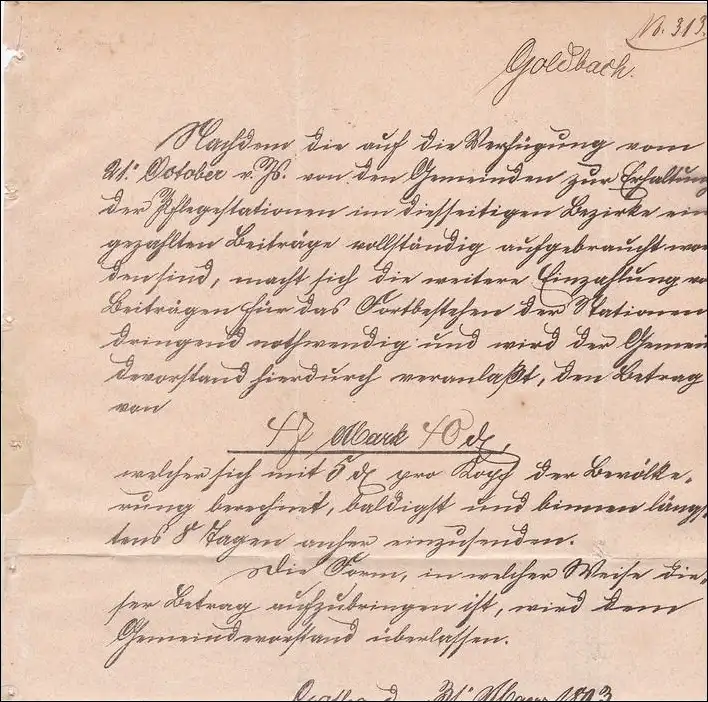 No. 313.
Goldbach.
Nachdem die auf die Verfügung vom
21. October v. Js. von den Gemeinden zur Erhaltung
der Pflegestationen im diesseitigen Bezirke ein
gezahlten Beiträge vollständig aufgebraucht wor
den sind, macht sich die weitere Einzahlung vo
Beiträgen für das Fortbestehen der Stationen
dringend nothwendig und wird der Gemein
devorstand hierdurch veranlaßt, den Betrag
von
47 Mark 40 ₰,
welcher sich mit 5 ₰ pro Kopf der Bevölke-
rung berechnet, baldigst und binnen längs-
tens 8 Tagen anher einzusenden.
Die Form, in welcher Weise die-
ser Betrag aufzubringen ist, wird dem
Gemeindevorstand überlassen.